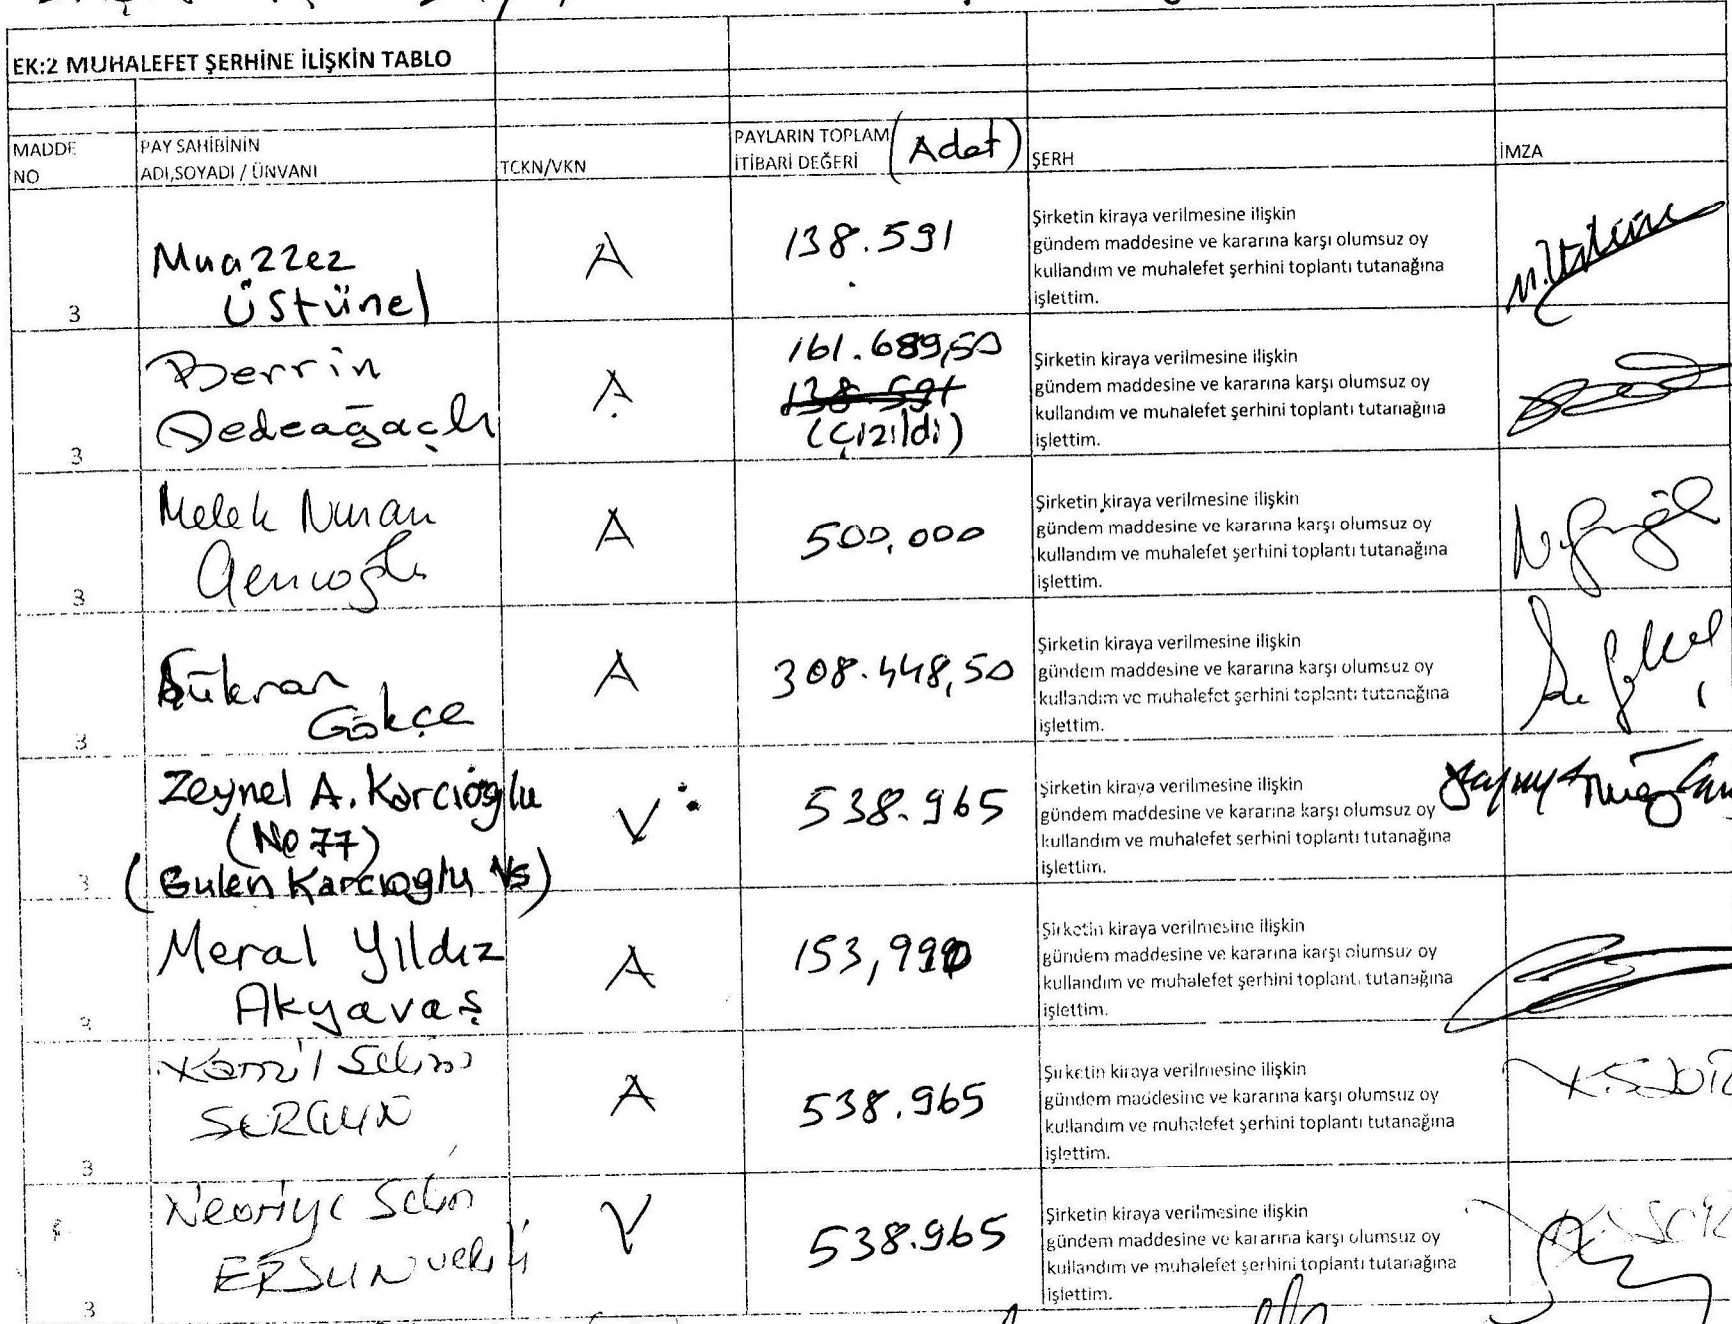 EK:2 MUHALEFET ŞERHİNE İLİŞKİN TABLO
MADDE NO
PAY SAHİBİNİN ADI,SOYADI / ÜNVANI
TCKN/VKN
PAYLARIN TOPLAM İTİBARİ DEĞERİ (Adet)
ŞERH
İMZA
3
Muazzez
Üstünel
A
138.591
Şirketin kiraya verilmesine ilişkin
gündem maddesine ve kararına karşı olumsuz oy
kullandım ve muhalefet şerhini toplantı tutanağına
işlettim.
3
Berrin
Dedeağaçlı
A
161.689,50
138.591
(Çizildi)
Şirketin kiraya verilmesine ilişkin
gündem maddesine ve kararına karşı olumsuz oy
kullandım ve muhalefet şerhini toplantı tutanağına
işlettim.
3
Melek Nuran
A
500,000
Şirketin kiraya verilmesine ilişkin
gündem maddesine ve kararına karşı olumsuz oy
kullandım ve muhalefet şerhini toplantı tutanağına
işlettim.
3
Şükran
Gökçe
A
308.448,50
Şirketin kiraya verilmesine ilişkin
gündem maddesine ve kararına karşı olumsuz oy
kullandım ve muhalefet şerhini toplantı tutanağına
işlettim.
3
Zeynel A. Karcıoğlu
(No 77)
(Gulen Karcıoglu Vs)
V
538.965
Şirketin kiraya verilmesine ilişkin
gündem maddesine ve kararına karşı olumsuz oy
kullandım ve muhalefet serhini toplantı tutanağına
işlettim.
Meral Yıldız
Akyavaş
A
Şirketin kiraya verilmesine ilişkin
gündem maddesine ve kararına karşı olumsuz oy
kullandım ve muhalefet şerhini toplantı tutanağına
işlettim.
3
Kamil Selim
A
538.965
Şirketin kiraya verilmesine ilişkin
gündem maddesine ve kararına karşı olumsuz oy
kullandım ve muhalefet şerhini toplantı tutanağına
işlettim.
3
ERSUN vekili
V
538.965
Şirketin kiraya verilmesine ilişkin
gündem maddesine ve kararına karşı olumsuz oy
kullandım ve muhalefet şerhini toplantı tutanağına
işlettim.